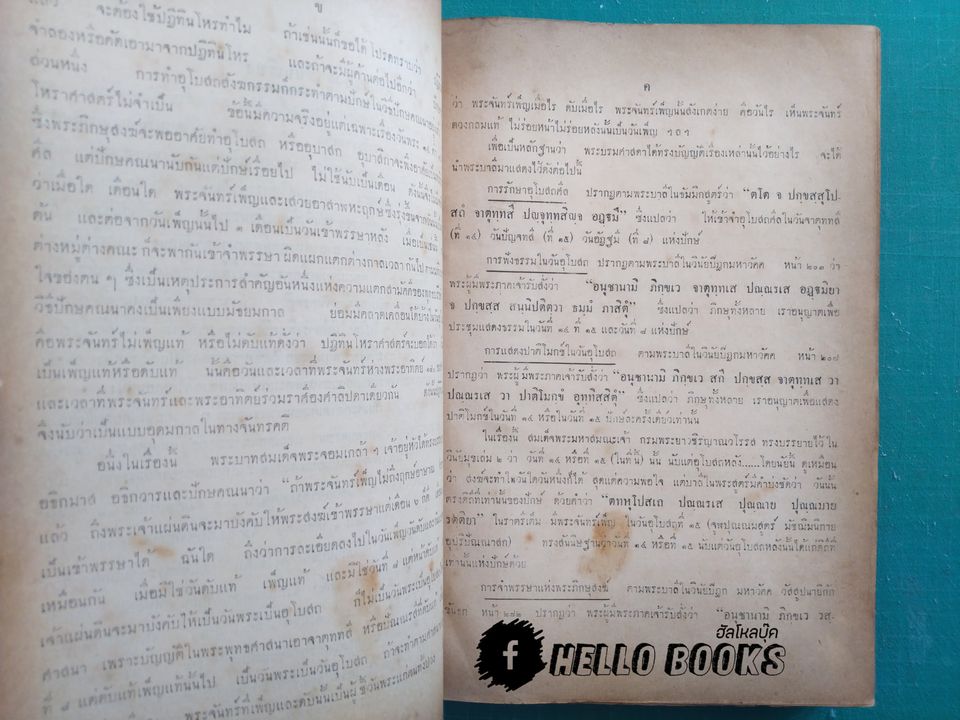 ข
แล้ว จะต้องใช้ปฏิทินโหรทำไม ถ้าเช่นนั้นก็ขอได้โปรดทราบว่า
จำลองหรือคัดเอามาจากปฏิทินโหร และถ้าจะมีผู้ค้านต่อไปอีกว่า
ส่วนหนึ่ง การทำอุโบสถสังฆกรรมก็กระทำตามปักษ์ในวิธีปักษคณนา
โหราศาสตร์ไม่จำเป็น ข้อนี้มีความจริงอยู่แต่เฉพาะเรื่องวันพระ
ซึ่งพระภิกษุสงฆ์จะพออาศัยทำอุโบสถ หรืออุบาสก อุบาสิกาจะพึง
ศีล แต่ปักษคณนานับกันแต่ปักษ์เรื่อยไป ไม่ใช้นับเป็นเดือน
ว่าเมื่อใด เดือนใด พระจันทร์เพ็ญและเสวยอาสาฬหะฤกษ์ ซึ่งรุ่งขึ้น
ต้น และต่อจากวันเพ็ญนั้นไป ๑ เดือนเป็นวันเข้าพรรษาหลัง
ต่างหมู่ต่างคณะ ก็จะพากันเข้าจำพรรษา ผิดแผกแตกต่างกาลเวลากันไป
ใจของตน ๆ ซึ่งเป็นเหตุประการสำคัญอันหนึ่งแห่งความแตกสามัคคี
วิธีปักษคณนาคงเป็นเพียงแบบมัธยมกาล ย่อมมีคลาดเคลื่อนได้
คือพระจันทร์ไม่เพ็ญแท้ หรือไม่ดับแท้ดั่งว่า ปฏิทินโหราศาสตร์จะบอกได้
เป็นเพ็ญแท้หรือดับแท้ นั้นคือวันและเวลาที่พระจันทร์ห่างพระอาทิตย์
และเวลาที่พระจันทร์และพระอาทิตย์ร่วมราศีองศาลิปดาเดียวกัน
จึงนับว่าเป็นแบบอุดมกาลในทางจันทรคติ
อนึ่งในเรื่องนี้ พระบาทสมเด็จพระจอมเกล้า ฯ เจ้าอยู่หัวได้ทรง
อธิกมาส อธิกวารและปักษคณนาว่า “ถ้าพระจันทร์เพ็ญไม่ถึงฤกษ์
แล้ว ถึงพระเจ้าแผ่นดินจะมาบังคับให้พระสงฆ์เข้าพรรษาแต่เดือน ๖ ก็ดี
เป็นเข้าพรรษาได้ ฉันใด ถึงว่าการละเอียดลงไปในวันเพ็ญวันดับ
เหมือนกัน เมื่อมิใช่วันดับแท้ เพ็ญแท้ และมิใช่วันที่ ๘ แต่
เจ้าแผ่นดินจะมาบังคับให้เป็นวันพระเป็นอุโบสถ ก็ไม่เป็นวันพระเป็นอุโบสถ
ศาสนา เพราะบัญญัติในพระพุทธศาสนาเอาจาตุททสี หรือปัณณรสี
ที่ ๘ แต่ดับแท้เพ็ญแท้นั้นไป เป็นวันพระเป็นวันอุโบสถ ถ้าจะทำตาม
พระจันทร์ที่เพ็ญและดับนั้นเป็นผู้ชี้วันพระ
ค
ว่า พระจันทร์เพ็ญเมื่อไร ดับเมื่อไร พระจันทร์เพ็ญนั้นสังเกตง่าย คือวันไร เห็นพระจันทร์
ดวงกลมแท้ ไม่ร่อยหน้าไม่ร่อยหลังนั้นเป็นวันเพ็ญ ฯลฯ
เพื่อเป็นหลักฐานว่า พระบรมศาสดาได้ทรงบัญญัติเรื่องเหล่านั้นไว้อย่างไร จะได้
นำพระบาลีมาแสดงไว้ดังต่อไปนี้
การรักษาอุโบสถศีล ปรากฏตามพระบาลีในธัมมิกสูตรว่า “ตโต จ ปกฺขสฺสุโป-
สถํ จาตุทฺทสึ ปญฺจทฺทสิญฺจ อฏฺฐมึ” ซึ่งแปลว่า ให้เข้าจำอุโบสถศีลในวันจาตุททสี
(ที่ ๑๔) วันปัญจทสี (ที่ ๑๕) วันอัฏฐมี (ที่ ๘) แห่งปักษ์
การฟังธรรมในวันอุโบสถ ปรากฏตามพระบาลีในวินัยปิฎกมหาวัคค หน้า ๒๐๓ ว่า
พระผู้มีพระภาคเจ้ารับสั่งว่า “อนุชานามิ ภิกฺขเว จาตุทฺทเส ปณฺณรเส อฏฺฐมิยา
จ ปกฺขสฺส สนฺนิปติตฺวา ธมฺมํ ภาสิตุํ” ซึ่งแปลว่า ภิกษุทั้งหลาย เราอนุญาตเพื่อ
ประชุมแสดงธรรมในวันที่ ๑๔ ที่ ๑๕ และวันที่ ๘ แห่งปักษ์
การแสดงปาติโมกข์ในวันอุโบสถ ตามพระบาลีในวินัยปิฎกมหาวัคค หน้า ๒๐๗
ปรากฏว่า พระผู้มีพระภาคเจ้ารับสั่งว่า “อนุชานามิ ภิกฺขเว สกึ ปกฺขสฺส จาตุทฺทเส วา
ปณฺณรเส วา ปาติโมกฺขํ อุทฺทิสฺสิตุํ” ซึ่งแปลว่า ภิกษุทั้งหลาย เราอนุญาตเพื่อแสดง
ปาติโมกข์ในวันที่ ๑๔ หรือในวันที่ ๑๕ ปักษ์ละครั้งเดียวเท่านั้น
ในเรื่องนี้ สมเด็จพระมหาสมณะเจ้า กรมพระยาวชิรญาณวโรรส ทรงบรรยายไว้ใน
วินัยมุขเล่ม ๒ ว่า วันที่ ๑๔ หรือที่ ๑๕ (ในที่นี้) นั้น นับแต่อุโบสถหลัง.......โดยนัยนี้ ดูเหมือน
ว่า สงฆ์จะทำในวันใดวันหนึ่งก็ได้ สุดแต่ความพอใจ แต่บาลีในพระสูตรมีคำบ่งชัดว่า วันนั้น
ตรงดิถีที่เท่านั้นของปักษ์ ด้วยคำว่า “ตทหุโปสเถ ปณฺณรเส ปุณฺณาย ปุณฺณมาย
รตฺติยา” ในราตรีเต็ม มีพระจันทร์เพ็ญ ในวันอุโบสถที่ ๑๕ (จูฬปุณณมสูตร์ มัชฌิมนิกาย
อุปริปัณณาสก) ทรงสันนิษฐานว่าวันที่ ๑๔ หรือที่ ๑๕ นับแต่วันอุโบสถหลังนั้นได้แก่ดิถีที่
เท่านั้นแห่งปักษ์ด้วย
การจำพรรษาแห่งพระภิกษุสงฆ์ ตามพระบาลีในวินัยปิฎก มหาวัคค วัสสูปนายิกัก
ขันธก หน้า ๒๗๒ ปรากฏว่า พระผู้มีพระภาคเจ้ารับสั่งว่า “อนุชานามิ ภิกฺขเว วสฺ-
ฮัลโหลบุ๊ค
f HELLO BOOKS